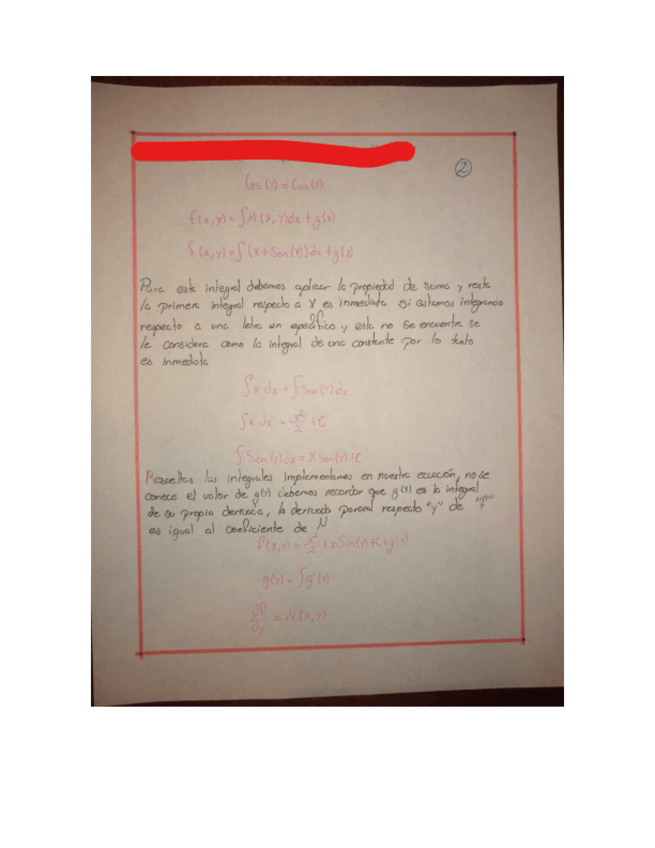 2
Cos(y) = Cos(y)
f(x,y) = ∫M(x,y)dx + g(y)
f(x,y) = ∫(x+Sen(y))dx + g(y)
Para esta integral debemos aplicar la propiedad de suma y resta
la primera integral respecto a x es inmediata si estamos integrando
respecto a una letra en específico y esta no se encuentra se
le considera como la integral de una constante por lo tanto
es inmediata
∫x dx + ∫Sen(y)dx
∫x dx = x²/2 + C
∫Sen(y)dx = XSen(y)+C
Resueltas las integrales implementamos en nuestra ecuación, no se
conoce el valor de g(y) debemos recordar que g(y) es la integral
de su propia derivada, la derivada respecto "y" de "f"
es igual al coeficiente de N
f(x,y) = x²/2 + xSin(y)+C+g(y)
g(y) = ∫g'(y)
df/dy = N(x,y)